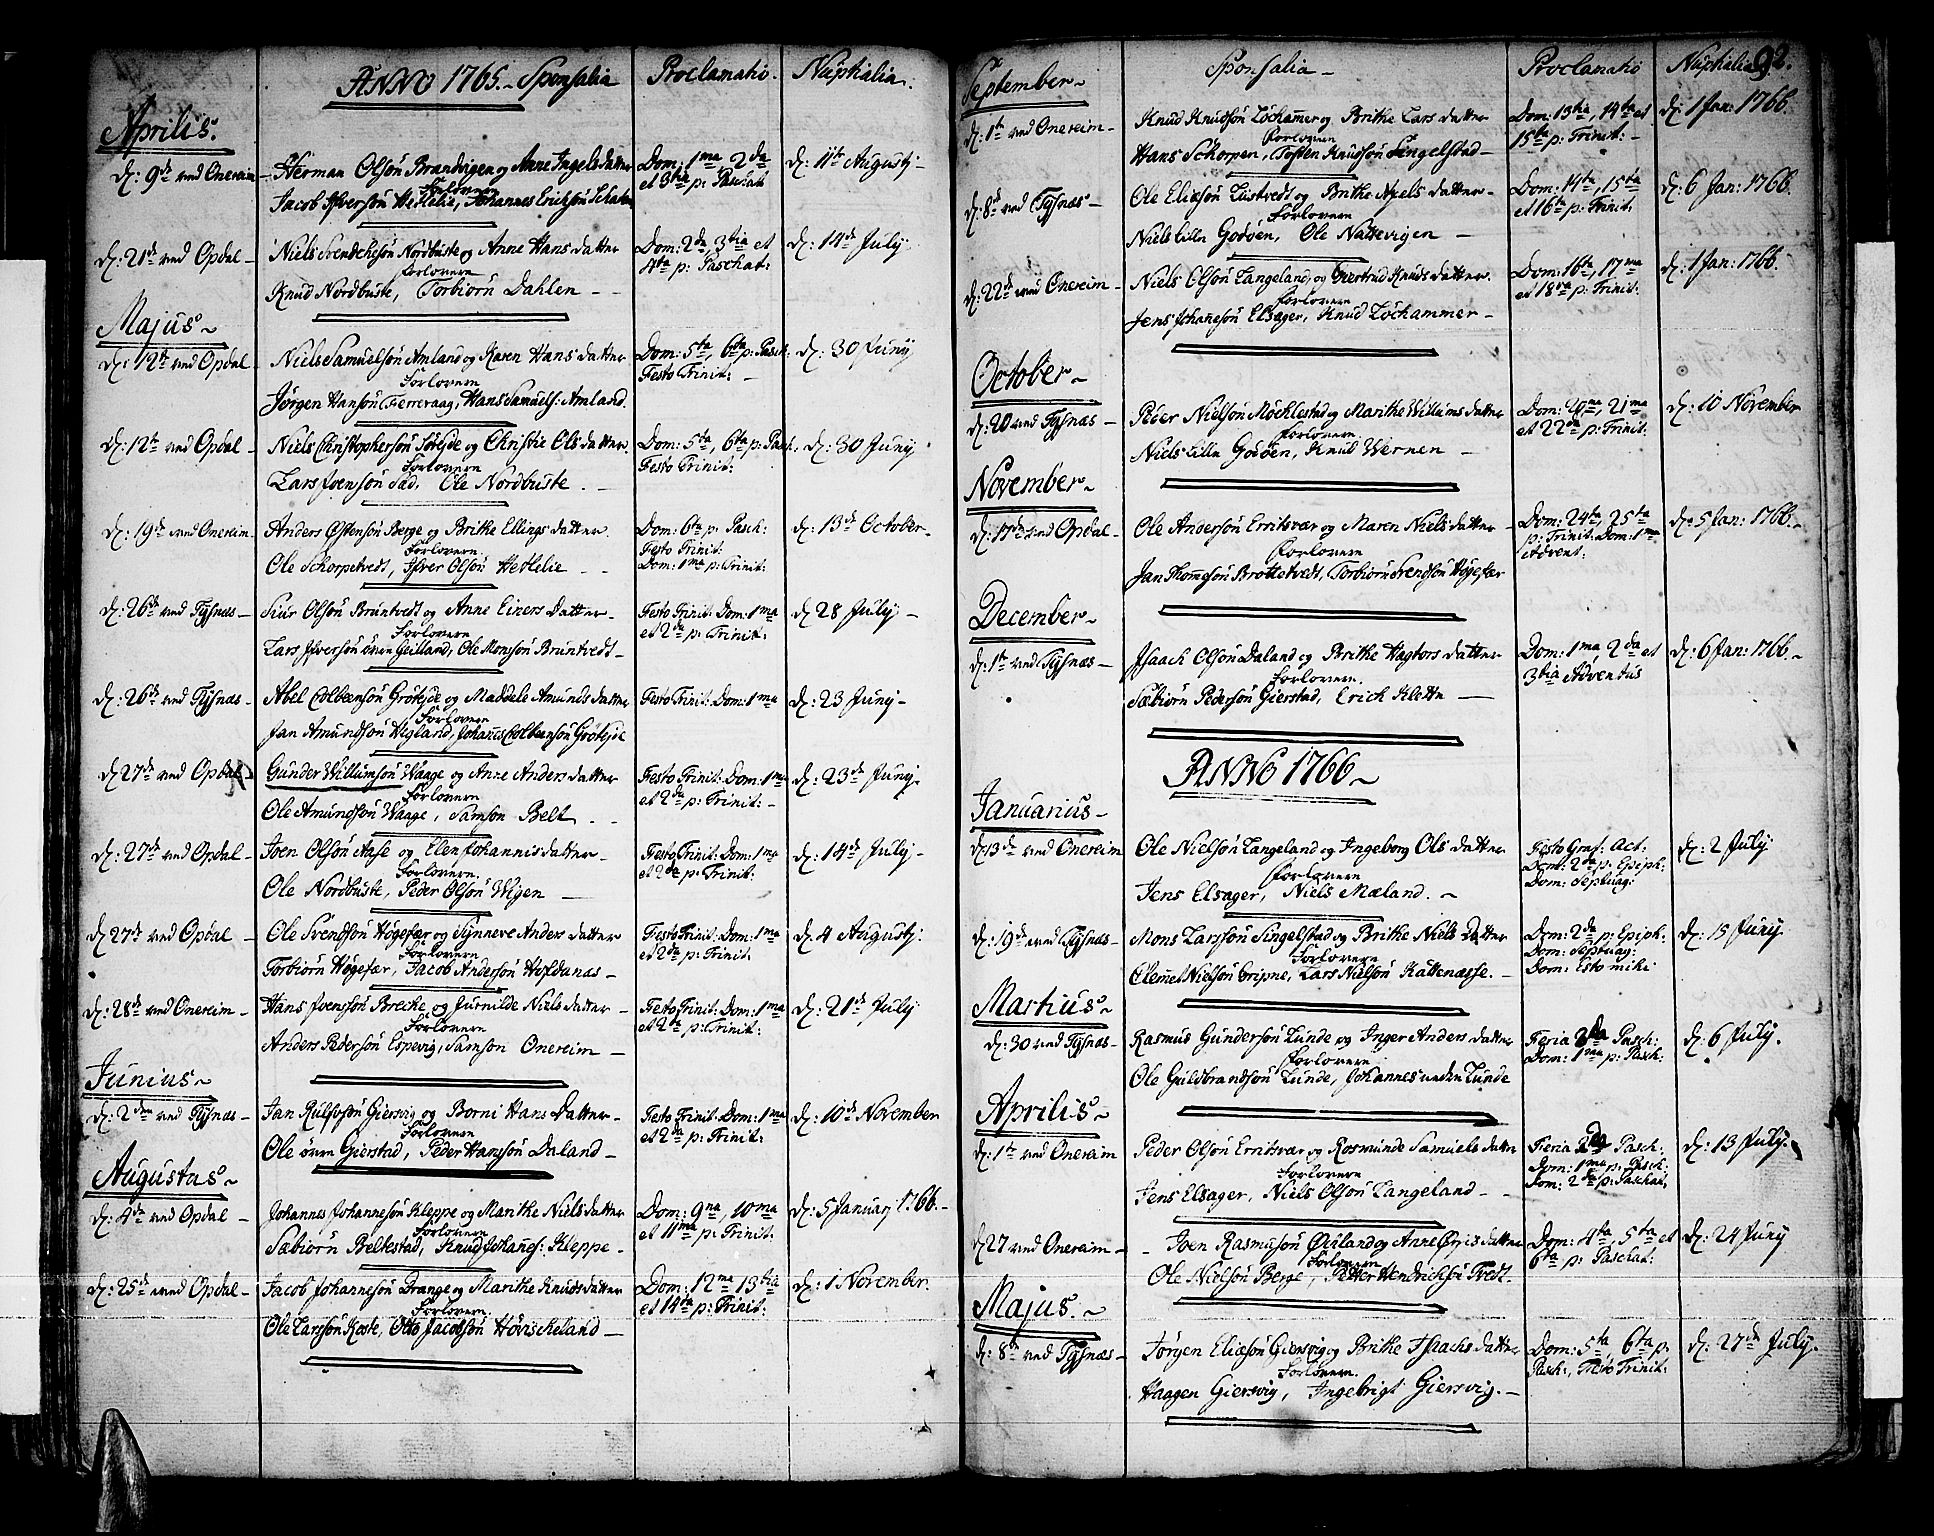 ANNO 1765. Sponsalia Proclamatio. Nuptialia:
Aprilis.
d: 9de ved Onereim - Herman Olsøn Brandvigen og Anne Ingels datter Dom: 1ma, 2da d: 11te Augusti -
Forlovere et 3tia p: Paschat
Jacob Ifversøn Hetlelie, Johannes Erichsøn
d: 21de ved Opdal - Niels Svendchesøn Nordbuste og Anne Hans datter Dom: 2da, 3tia et d: 14de July
Forlovere 4ta p: Paschat:
Knud Nordbuste, Torbiørn Dahlen -
Majus
d: 12te ved Opdal - Niels Samuelsøn Amland og Karen Hans datter Dom: 5ta, 6ta p: Pasch: d: 30 Juny
Forlovere Festo Trinit: -
Jørgen Hansøn Ferrevaag, Hans Samuels: Amland.
d: 12te ved Opdal - Niels Christophersøn Søreyde og Christie Ols datter Dom: 5ta, 6ta p: Pasch. d: 30 Juny
Forlovere Festo Trinit:
Lars Ivensøn Sæd, Ole Nordbuste.
d: 19de ved Onereim - Anders Østensøn Berge og Brithe Ellings datter. Dom: 6ta p: Pasch: d: 13de October -
Forlovere. Festo Trinit:
Ole Schorpetvedt, Ifver Olsøn Hetlelie - Dom: 1ma p: Trinit:
d: 26de ved Tysnæs - Siur Olsøn Bruntvedt og Anne Einers Datter - Festo Trinit: Dom: 1ma d 28 July -
Forlovere et 2da p: Trinit:
Lars Ifversøn øvre Geilland, Ole Monsøn Bruntvedt -
d: 26de ved Tysnæs - Abel Colbensøn Grøteyde og Maddele Amunds datter Festo Trinit: Dom: 1ma d: 23 Juny -
Forlovere
Jan Amundsøn Vigland, Johannes Colbensøn Grøteyde
d 27de ved Opdal Gunder Villumsøn Waage og Anne Anders datter Festo Trinit: Dom: 1ma d: 23de Juny.
Forlovere et 2da p: Trinit: -
Ole Amundsøn Waage, Samson Belt.
d: 27de ved Opdal - Iven Olsøn Aase og Elen Johannis datter - Festo Trinit: Dom: 1ma d: 14de July -
Forlovere. et 2da p: Trinit:
Ole Nordbuste, Peder Olsøn Vigen -
d 27de ved Opdal - Ole Svendsøn Høgefær og Synneve Anders datter Festo Trinit: Dom: 1ma d: 4 Augusti.
Forlovere et 2da p: Trinit
Torbiørn Høgefær, Jacob Andersøn Hofdanæs -
d: 28de ved Onereim - Hans Ivensøn Brecke og Jurnilde Niels datter - Festo Trinit: Dom: 1ma d: 21de July
Forlovere et 2da p: Trinit:
Anders Pedersøn Espevig, Samson Onereim -
Junius
d: 2den ved Tysnæs - Jan Rulfsøn Giersvig og Borni Hans Datter - Festo Trinit: Dom: 1ma d: 10de November
Forlovere et 2da p: Trinit:
Ole øvre Gierstad, Peder Hanssøn Daland -
Augustus
d: 4de ved Opdal - Johannes Johannesøn Kleppe og Marithe Niels datter Dom: 9na, 10ma d: 5 Januarj 1766. -
Forlovere et 11ma p: Trinit:
Sæbiørn Beltestad, Knud Johannes: Kleppe -
d: 25de ved Opdal - Jacob Johannesøn Drange og Marithe Knuds datter Dom: 12ma 13tia d: 1 November.
Forlovere. et 14ta p: Trinit:
Ole Larssøn Reste, Otto Jacobsøn Høvischeland -

92.
September Sponsalia - Proclamatio Nuptialia
d: 1te ved Onereim - Knud Knudsøn Løchammer og Brithe Lars datter Dom: 13tia, 14ta et d: 1 Jan: 1766.
Forlovere 15ta p: Trinit: -
Hans Schorpen, Tosten Knudsøn Singelstad -
d: 8de ved Tysnæs - Ole Eliæsøn Lustvedt og Brithe Niels datter - Dom: 14ta, 15ta d: 6 Jan: 1766.
Forlovere et 16ta p: Trinit:
Niels lille Godøen, Ole Nattevigen -
d: 22de ved Onereim - Niels Olsøn Langeland, og Giertrud Knuds datter. Dom: 16ta, 17ma d: 1 Jan: 1766.
Forlovere et 18va p: Trinit:
Jens Johannesøn Elsager, Knud Løchammer -
October
d: 20 ved Tysnæs - Peder Nielsøn Møchlestad og Marithe Willums datter Dom: 20ma, 21ma d: 10 November
Forlovere et 22da p: Trinit:
Niels lille Godøen, Knud Wernen -
November
d: 17de ved Opdal - Ole Andersøn Ernitsvær og Maren Niels datter - Dom: 24ta, 25ta d: 5 Jan: 1766. -
Forlovere p: Trinit: Dom: 1ma
Jan Thomesøn Brottetvedt, Torbiørn Svendsøn Høgefær Advent:
December
d: 1te ved Tysnæs - Isaach Olsøn Daland og Brithe Hagtors datter Dom: 1ma 2da et d: 6 Jan: 1766. -
Forlovere. 3tia Adventus
Sæbiørn Pedersøn Gierstad, Erich Klette -
ANNO 1766
Januarius
d 13de ved Onereim Ole Nielsøn Langeland og Ingeborg Ols datter Festo Graf: Act: d: 2 July
Forlovere Dom: 2da p: Epiph:
Jens Elsager, Niels Mæland. - Dom: Septuag:
d: 19de ved Tysnæs - Mons Larssøn Singelstad og Brithe Niels Datter Dom: 2da p: Epiph: d: 15 Juny.
Forlovere Dom: Septuag:
Clemet Nielsøn Gripne, Lars Nielsøn Kattenæsse. - Dom: Esto mihi
Martius
d: 30 ved Tysnæs - Rasmud Gundersøn Lunde og Inger Anders datter Feria 2da Pasch: d: 6 July.
Forlovere Dom: 1ma p: Pasch:
Ole Guldbrandsøn Lunde, Johannes neden Lunde
Aprilis
d: 1te ved Onereim Peder Olsøn Ernitsvær og Rosmunde Samuels datter Feria 2da Pasch: d: 13 July.
Forlovere Dom: 1ma p: Pasch:
Jens Elsager, Niels Olsøn Langeland - Dom: 2da p: Paschat,
d 27 ved Onereim - Iven Rasmusøn Øvland og Anne datter Dom: 4ta, 5ta et d: 24 Juny
Forlovere 6ta p: Paschat:
Ole Nielsøn Berge, Petter Hendrichsøn Tvedt.
Majus.
d: 8de ved Tysnæs - Jørgen Eliæsøn Giersvig og Brithe Isaachs datter Dom: 5ta, 6ta p. d: 27de July.
Forlovere. Pasch:, Festo Trinit:
Haagen Giersvig, Ingebrigt Giersvig. -